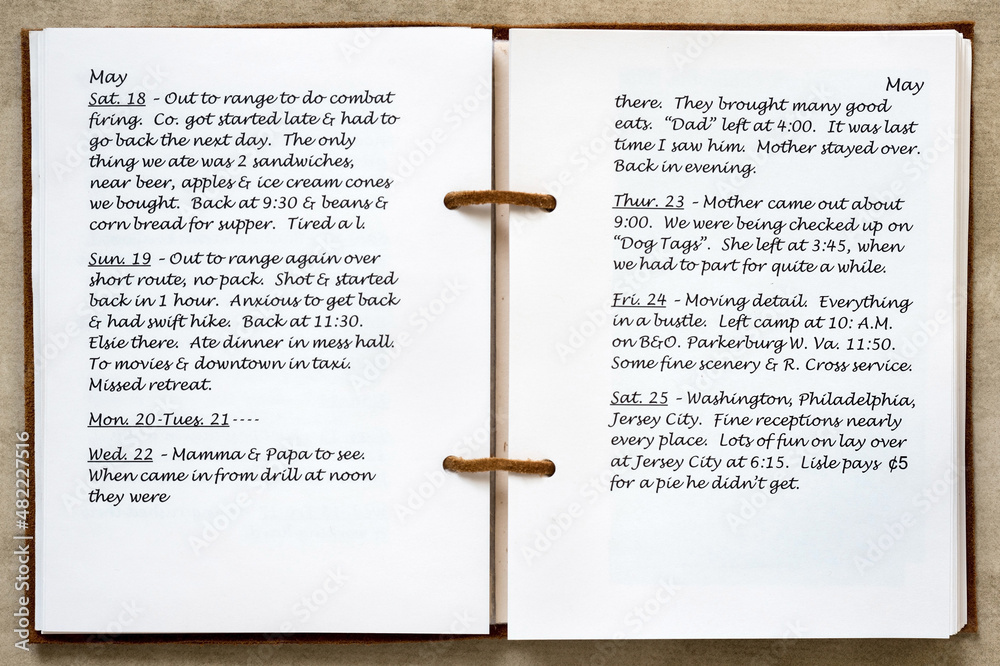 May
Sat. 18 – Out to range to do combat
firing. Co. got started late & had to
go back the next day. The only
thing we ate was 2 sandwiches,
near beer, apples & ice cream cones
we bought. Back at 9:30 & beans &
corn bread for supper. Tired a l.
Sun. 19 – Out to range again over
short route, no pack. Shot & started
back in 1 hour. Anxious to get back
& had swift hike. Back at 11:30.
Elsie there. Ate dinner in mess hall.
To movies & downtown in taxi.
Missed retreat.
Mon. 20-Tues. 21 ----
Wed. 22 – Mamma & Papa to see.
When came in from drill at noon
they were
May
there. They brought many good
eats. “Dad” left at 4:00. It was last
time I saw him. Mother stayed over.
Back in evening.
Thur. 23 – Mother came out about
9:00. We were being checked up on
“Dog Tags”. She left at 3:45, when
we had to part for quite a while.
Fri. 24 – Moving detail. Everything
in a bustle. Left camp at 10: A.M.
on B&O. Parkerburg W. Va. 11:50.
Some fine scenery & R. Cross service.
Sat. 25 – Washington, Philadelphia,
Jersey City. Fine receptions nearly
every place. Lots of fun on lay over
at Jersey City at 6:15. Lisle pays ¢5
for a pie he didn’t get.
Adobe Stock | #482227516